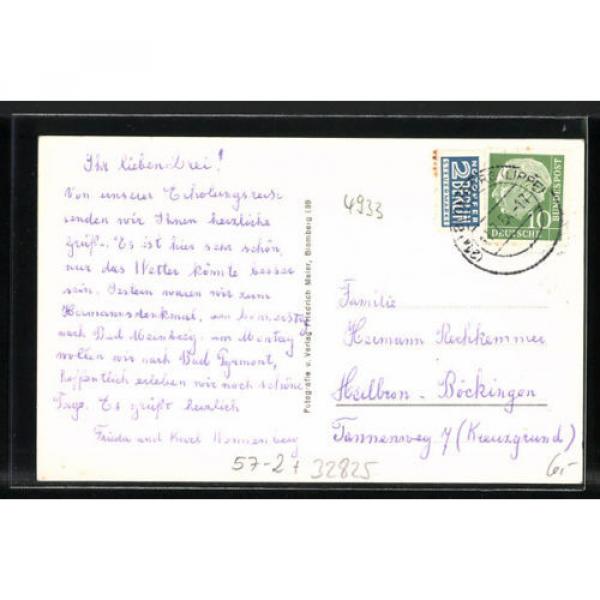 Ihr lieben drei!
Von unserer Erholungsreise
senden wir Ihnen herzliche
Grüße. Es ist hier sehr schön,
nur das Wetter könnte besser
sein. Gestern waren wir zum
Hermannsdenkmal, am Donnerstag
nach Bad Meinberg. am Montag
wollen wir nach Bad Pyrmont,
hoffentlich erleben wir noch schöne
Tage. Es grüßt herzlich
Frieda und Karl
57-2 + 32825
Fotografie u. Verlag Friedrich Maier, Blomberg L 99
4933
NOTOPFER
2 BERLIN
STEUERMARKE
(LIPPE)
10
DEUTSCHE
BUNDESPOST
Familie
Hermann Rechkemmer
Heilbron - Böckingen
Tannenweg 7 (Kreuzgrund)
6,-